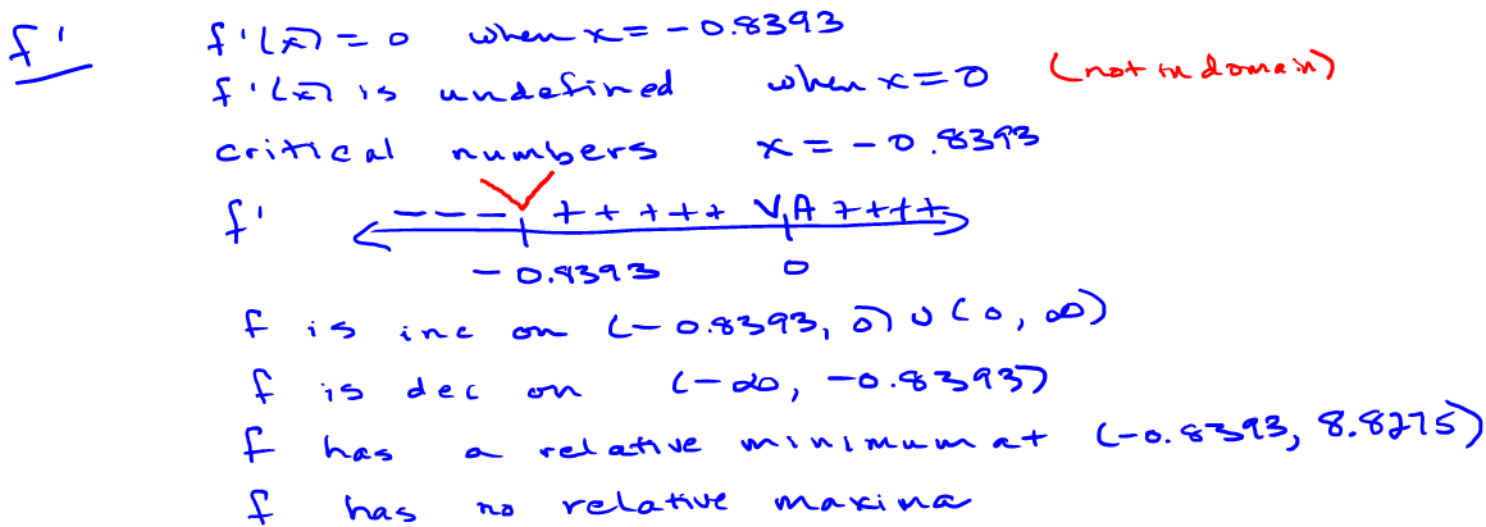 f' f'(x) = 0 when x = -0.8393
f'(x) is undefined when x = 0 (not in domain)
critical numbers x = -0.8393
f' - - - - + + + + + V.A + + + +
-0.8393 0
f is inc on (-0.8393, 0) ∪ (0, ∞)
f is dec on (-∞, -0.8393)
f has a relative minimum at (-0.8393, 8.8275)
f has no relative maxima